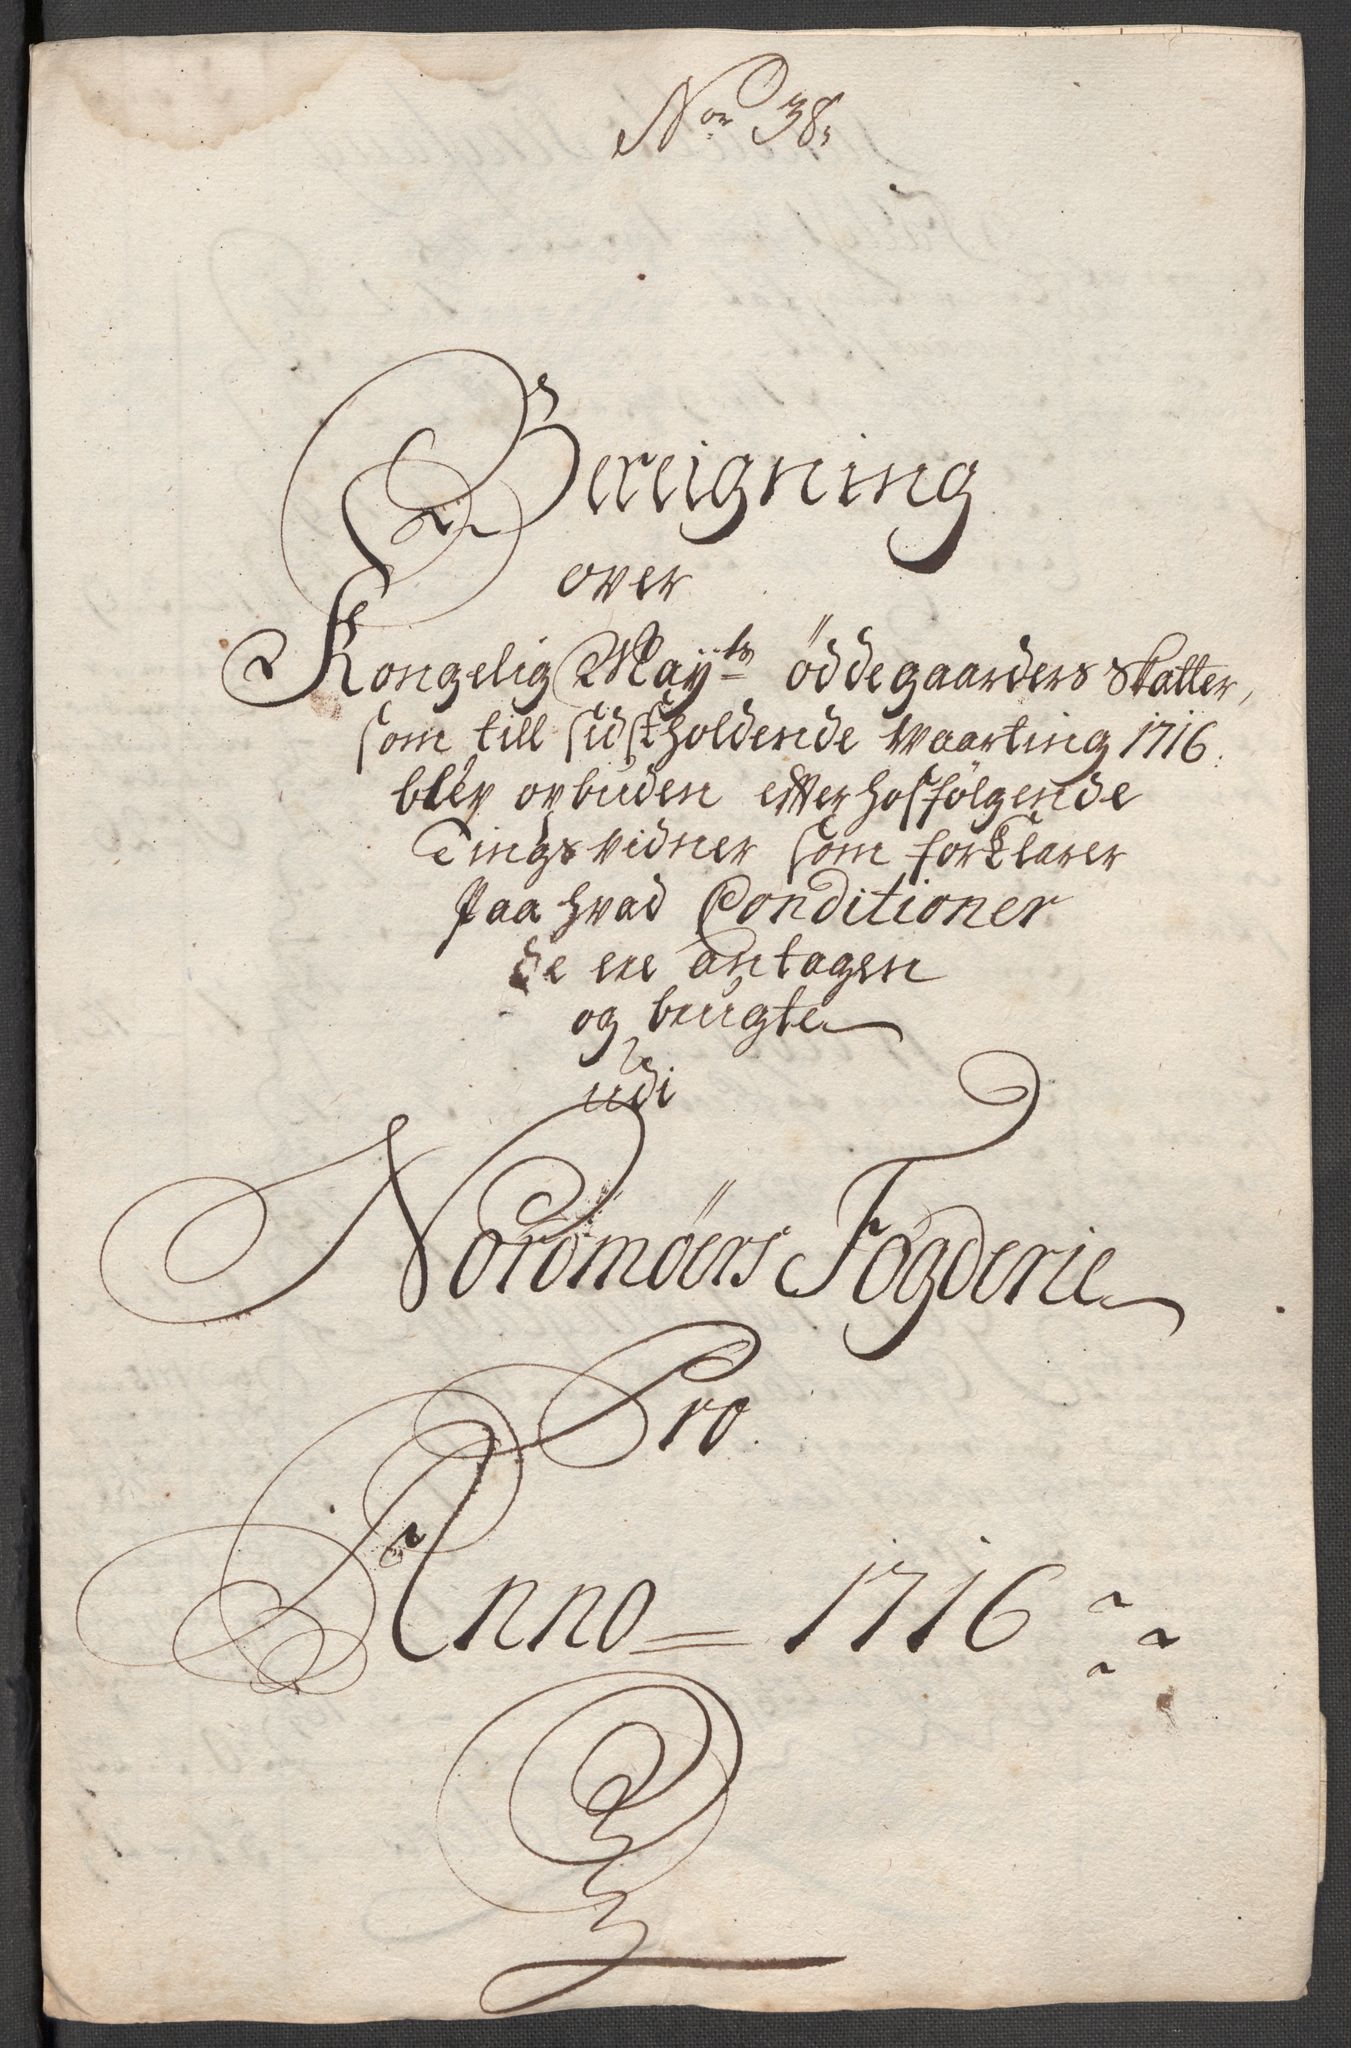 No 38,
Bereigning
over
Kongelig Mayts öddegaarders Skatter,
som till sidstholdende Waarting 1716.
blev opbuden effter hosfölgende
Tingsvidner som forklarer
paa hvad Conditioner
de ere antagen
og brugte
udi
Nordmöers Fogderie
Pro
Anno = 1716